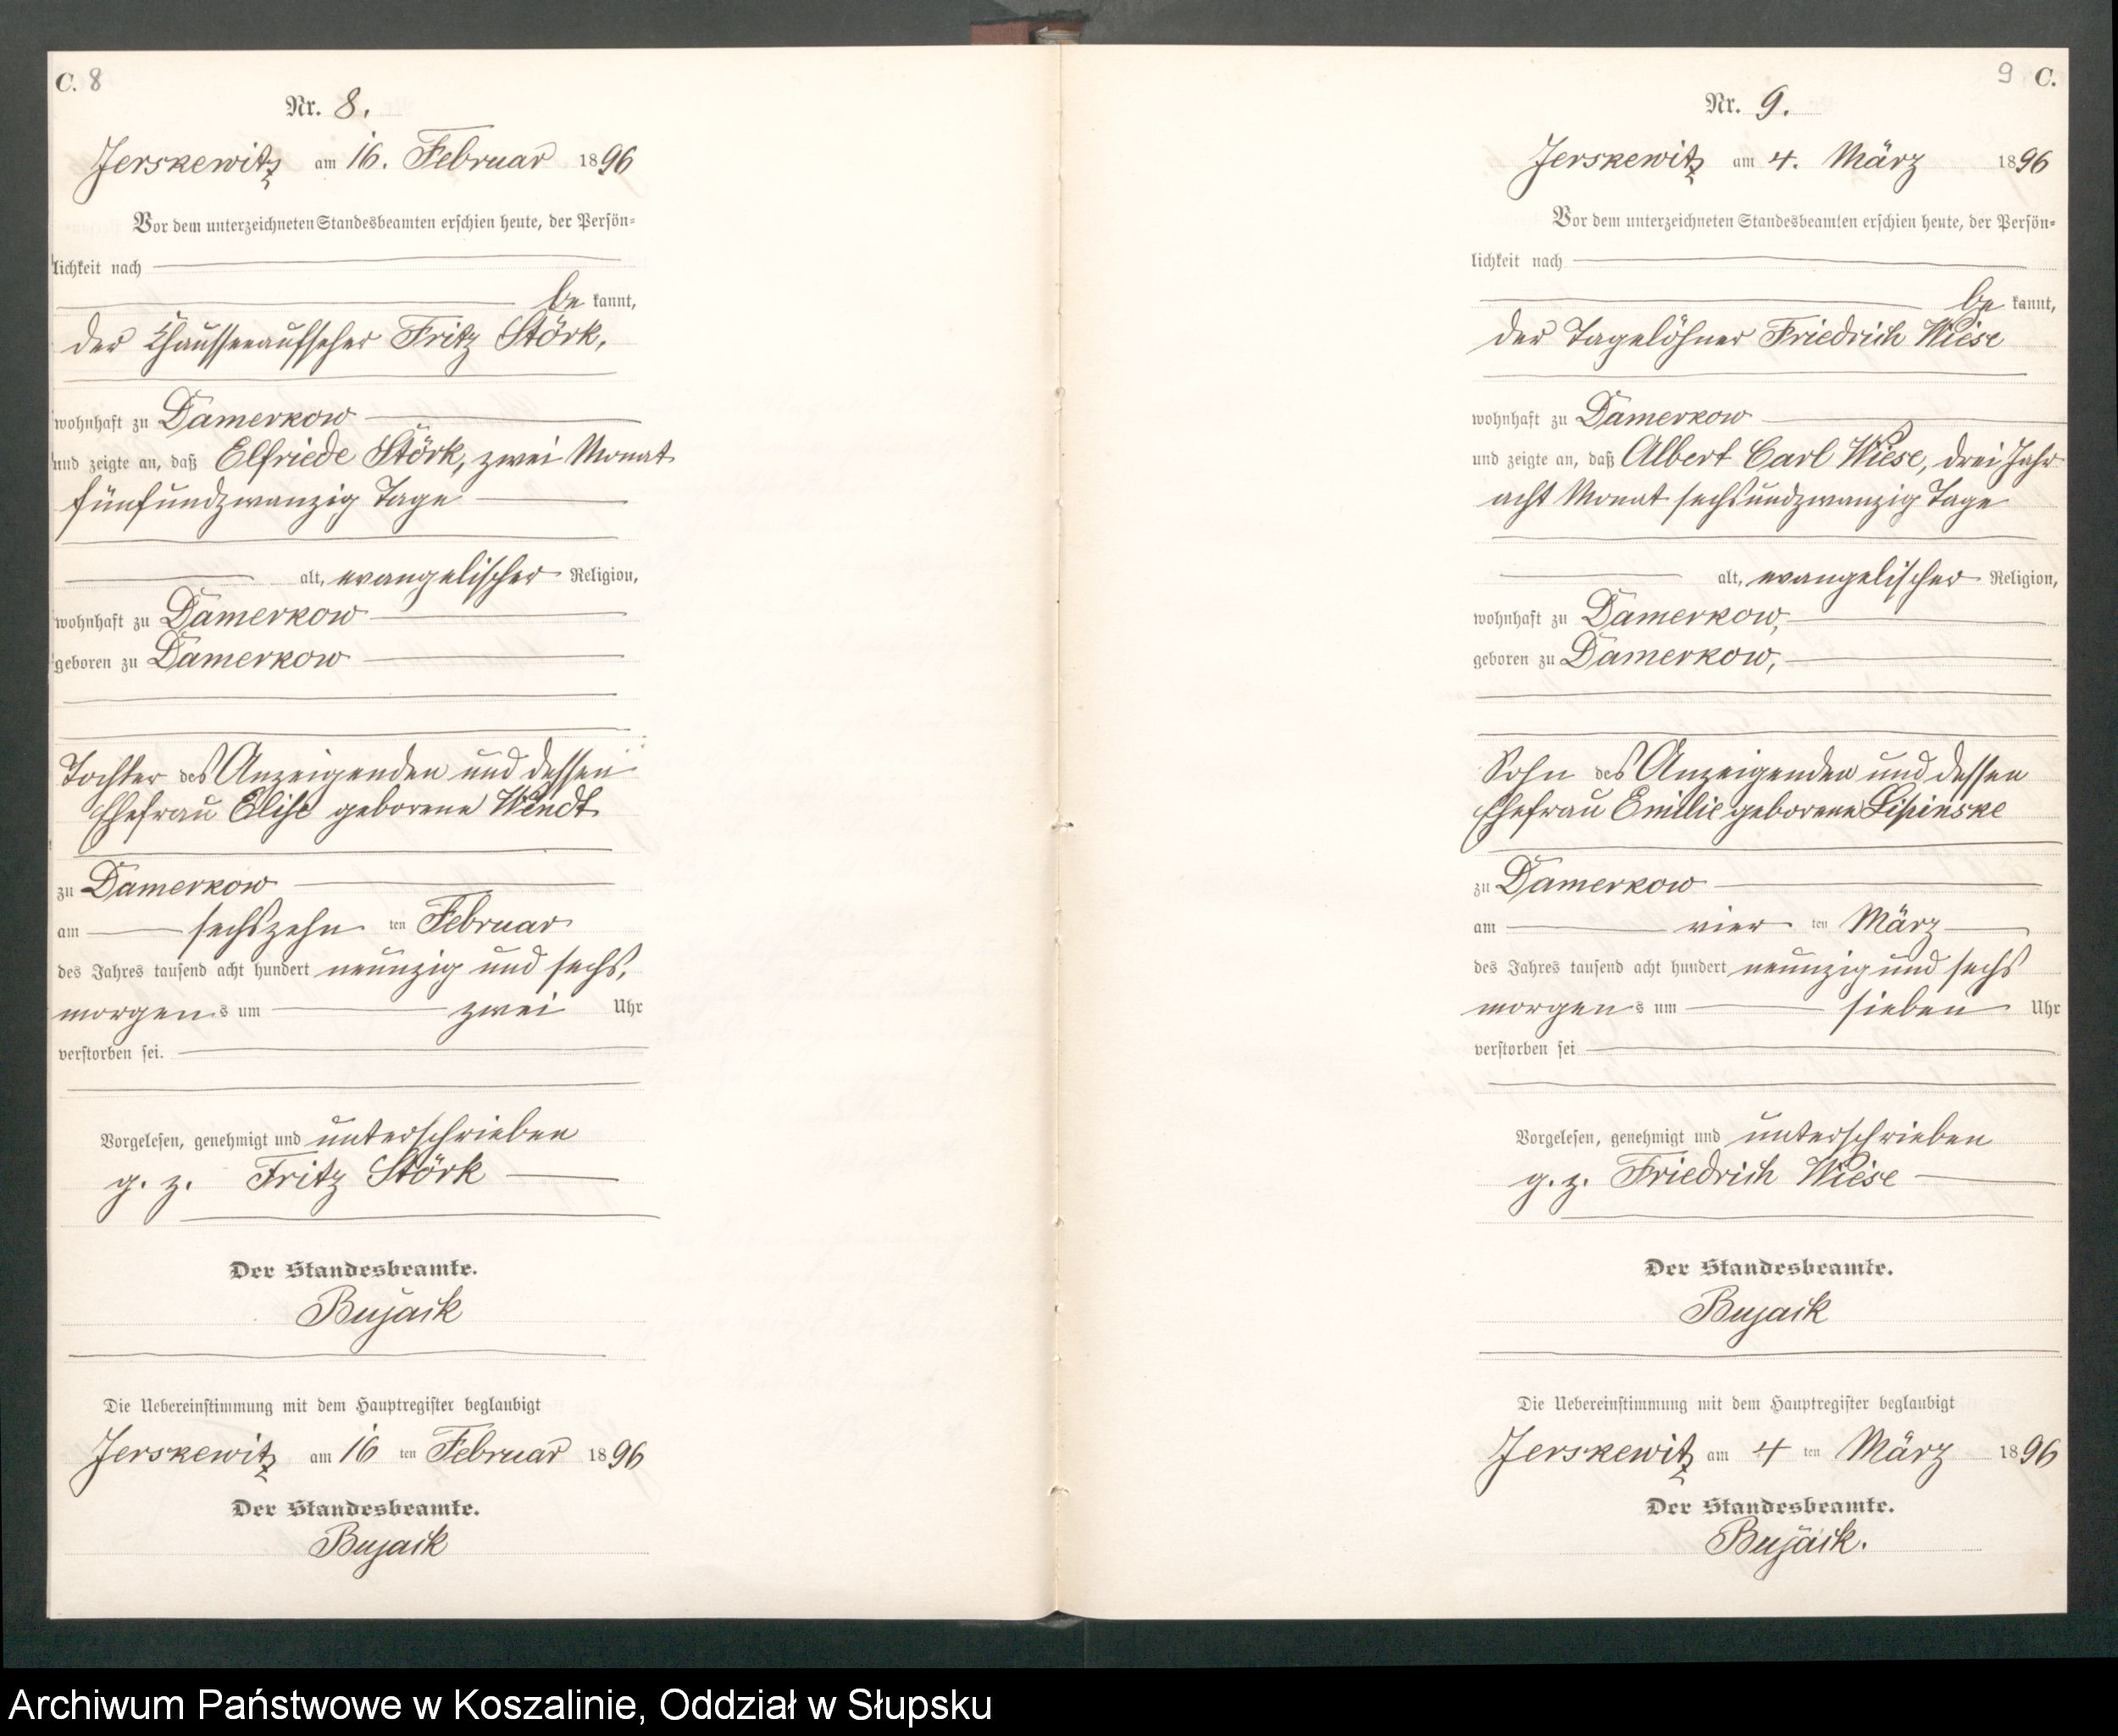 C. 8
Nr. 8.
Jerskewitz am 16. Februar 1896
Vor dem unterzeichneten Standesbeamten erschien heute, der Persön-
lichkeit nach
be kannt,
der Chausseeaufseher Fritz Störk,
wohnhaft zu Damerkow
und zeigte an, daß Elfriede Störk, zwei Monat
fünfundzwanzig Tage
alt, evangelischer Religion,
wohnhaft zu Damerkow
geboren zu Damerkow
Tochter des Anzeigenden und dessen
Ehefrau Elise geborene Wendt
zu Damerkow
am sechszehn ten Februar
des Jahres tausend acht hundert neunzig und sechs,
morgens um zwei Uhr
verstorben sei.
Vorgelesen, genehmigt und unterschrieben
g. z. Fritz Störk
Der Standesbeamte.
Bujack
Die Uebereinstimmung mit dem Hauptregister beglaubigt
Jerskewitz am 16 ten Februar 1896
Der Standesbeamte.
Bujack
9 C.
Nr. 9.
Jerskewitz am 4. März 1896
Vor dem unterzeichneten Standesbeamten erschien heute, der Persön-
lichkeit nach
be kannt,
der Tagelöhner Friedrich Wiese
wohnhaft zu Damerkow
und zeigte an, daß Albert Carl Wiese, drei Jahr
acht Monat sechsundzwanzig Tage
alt, evangelischer Religion,
wohnhaft zu Damerkow,
geboren zu Damerkow,
Sohn des Anzeigenden und dessen
Ehefrau Emilie geborene Lipinske
zu Damerkow
am vier ten März
des Jahres tausend acht hundert neunzig und sechs
morgens um sieben Uhr
verstorben sei
Vorgelesen, genehmigt und unterschrieben
g. z. Friedrich Wiese
Der Standesbeamte.
Bujack
Die Uebereinstimmung mit dem Hauptregister beglaubigt
Jerskewitz am 4 ten März 1896
Der Standesbeamte.
Bujack.
Archiwum Państwowe w Koszalinie, Oddział w Słupsku